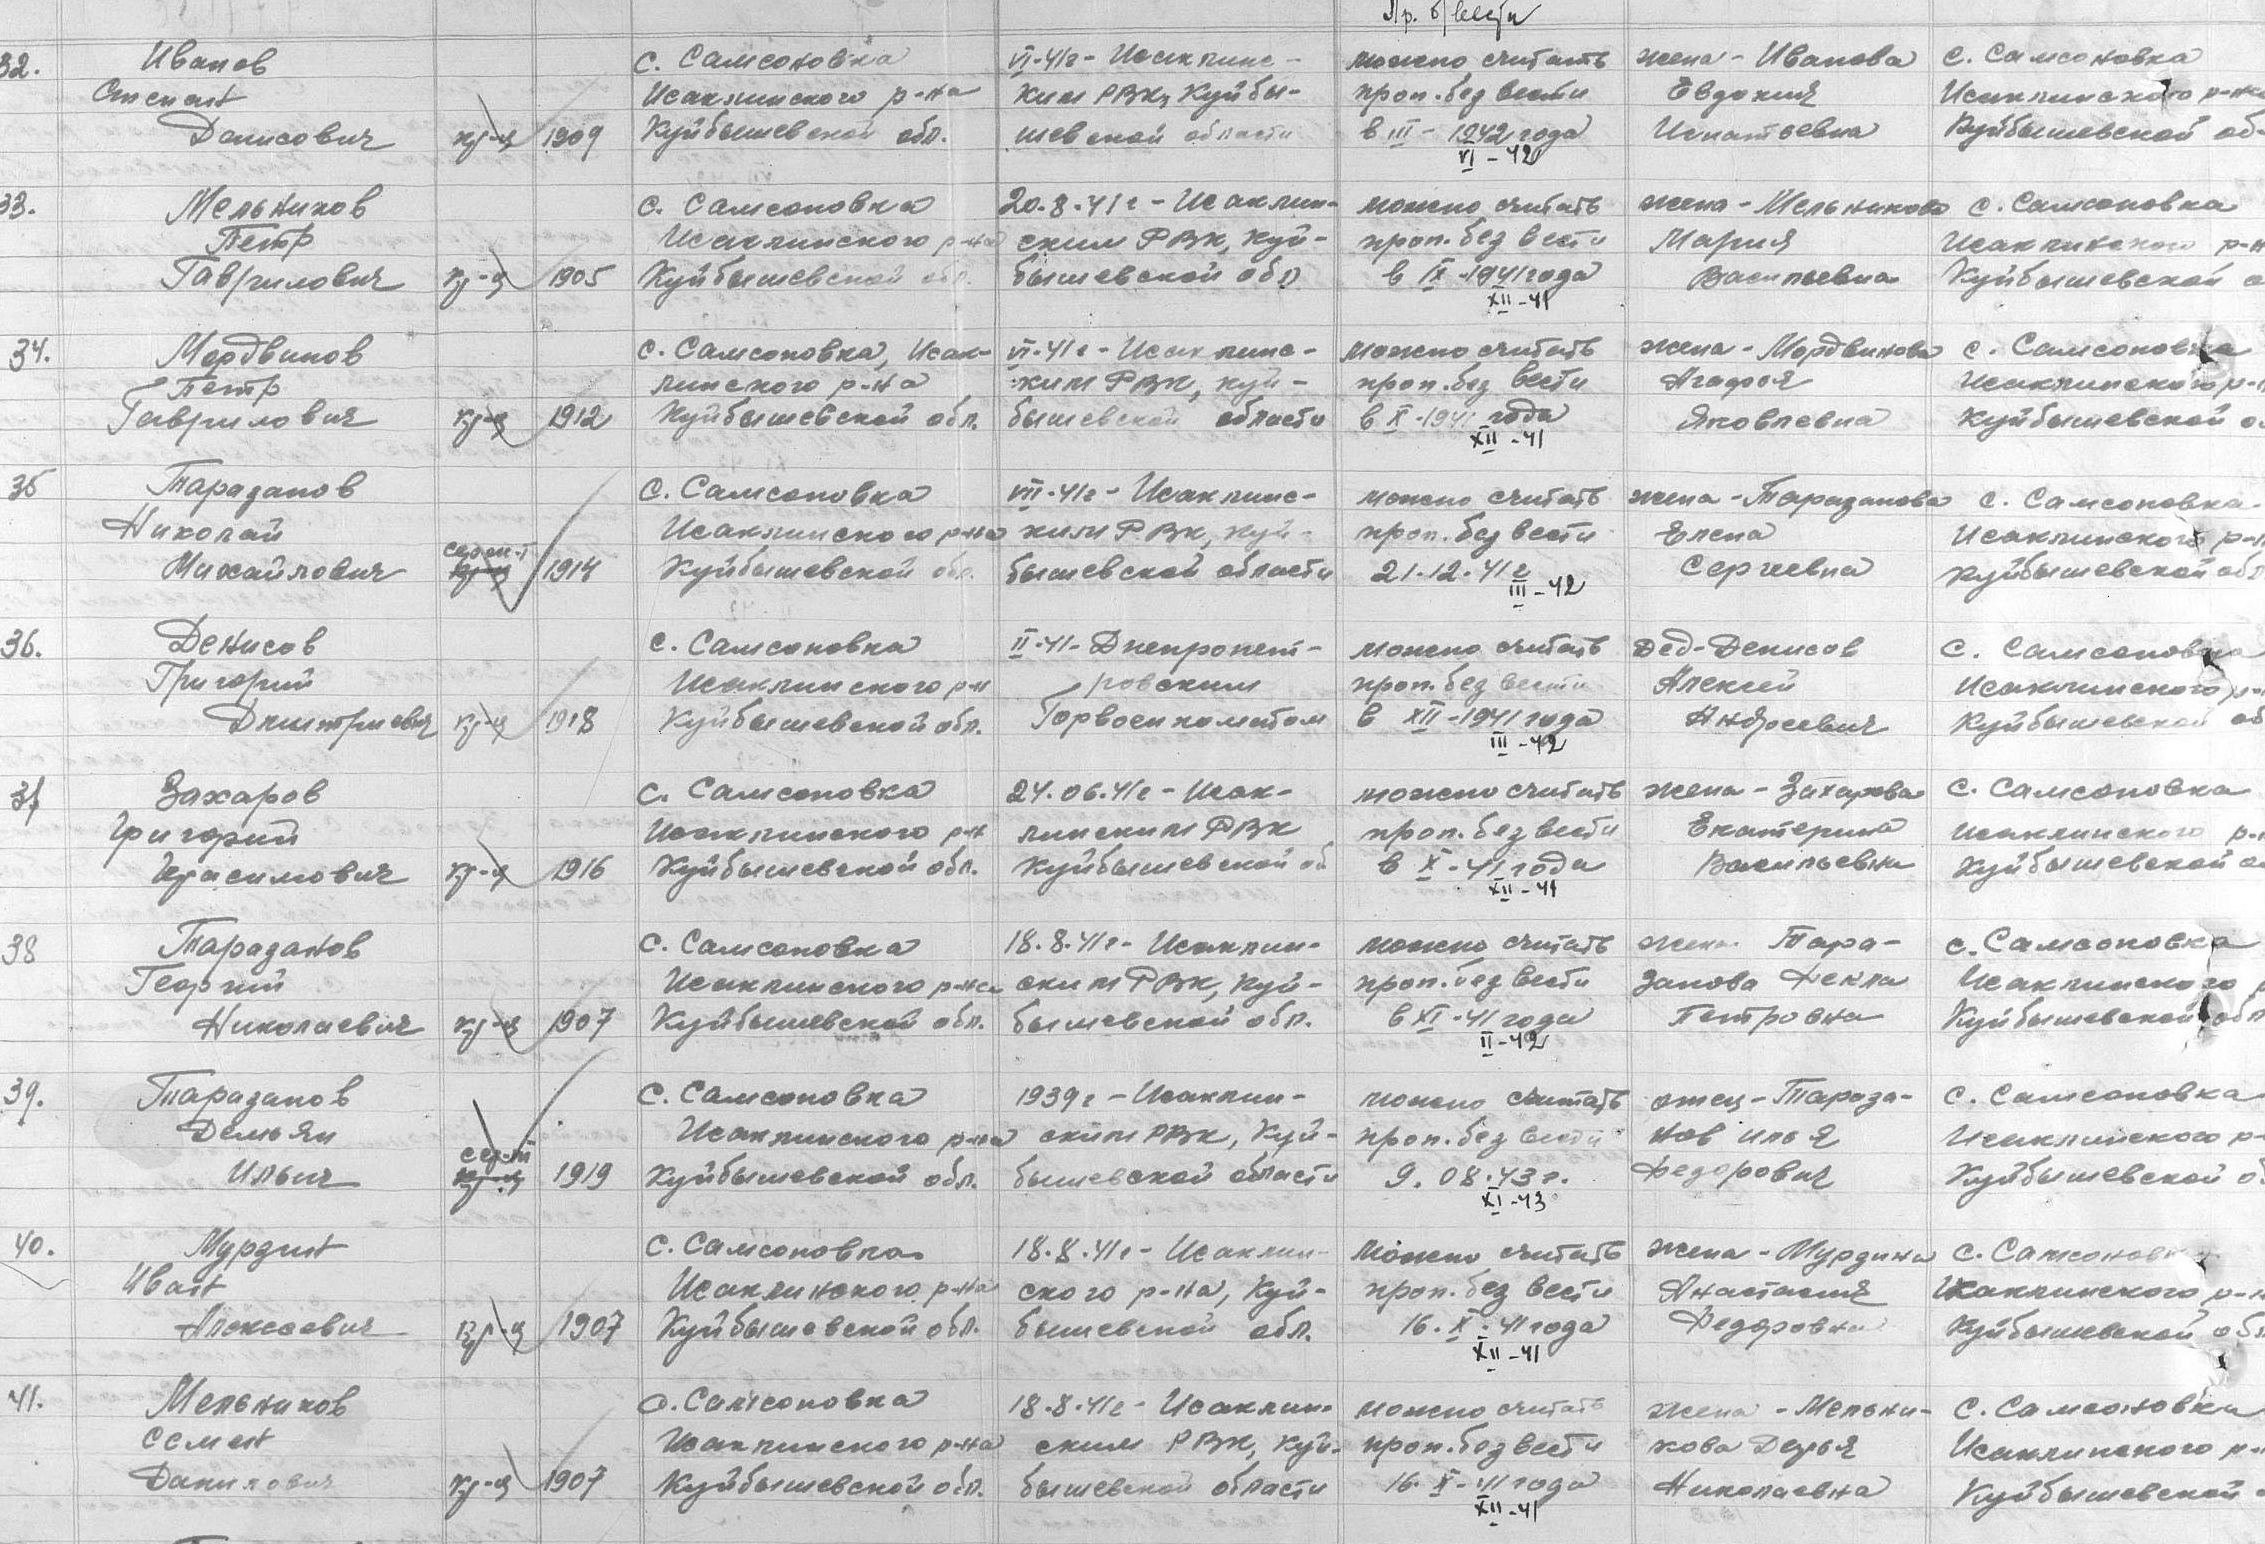 Пр. б/вести
32. Иванов с. Самсоновка VI-41г - Исаклинс- можно считать жена - Иванова с. Самсоновка
Степан Исаклинского р-на ким РВК, Куйбы- проп. без вести Евдокия Исаклинского р-на
Денисович кр-ц 1909 Куйбышевской обл. шевской области в III - 1942 года Игнатьевна Куйбышевской об
VI - 42
33. Мельников с. Самсоновка 20.8.41г - Исаклин- можно считать жена - Мельникова с. Самсоновка
Петр Исаклинского р-на ским РВК, Куй- проп. без вести Мария Исаклинского р-н
Гаврилович кр-ц 1905 Куйбышевской обл. бышевской обл в IX - 1941 года Васильевна Куйбышевской о
XII - 41
34. Мордвинов с. Самсоновка, Исак- VI-41г - Исаклинс- можно считать жена - Мордвинова с. Самсоновка
Петр линского р-на ким РВК, Куй- проп. без вести Агафья Исаклинского р-н
Гаврилович кр-ц 1912 Куйбышевской обл. бышевской области в X - 1941 года Яковлевна Куйбышевской о
XII - 41
35 Таразанов с. Самсоновка VII-41г - Исаклинс- можно считать жена - Таразанова с. Самсоновка
Николай Исаклинского р-на ким РВК, Куй- проп. без вести Елена Исаклинского р-н
серж-т
Михайлович кр-ц 1914 Куйбышевской обл. бышевской области 21.12.41г Сергеевна Куйбышевской обл
III - 42
36. Денисов с. Самсоновка II-41 - Днепропет- можно считать Дед - Денисов с. Самсоновка
Григорий Исаклинского р-н ровским проп. без вести Алексей Исаклинского р-
Дмитриевич кр-ц 1918 Куйбышевской обл. Горвоенкоматом в XII - 1941 года Андреевич Куйбышевской об
III - 42
37 Захаров с. Самсоновка 24.06.41г - Исак- можно считать жена - Захарова с. Самсоновка
Григорий Исаклинского р-н линским РВК проп. без вести Екатерина Исаклинского р-н
Герасимович кр-ц 1916 Куйбышевской обл. Куйбышевской об в X - 41 года Васильевна Куйбышевской о
XII - 41
38 Таразанов с. Самсоновка 18.8.41г - Исаклин- можно считать жена Тара- с. Самсоновка
Георгий Исаклинского р-на ским РВК, Куй- проп. без вести занова Фекла Исаклинского р
Николаевич кр-ц 1907 Куйбышевской обл. бышевской обл. в XI - 41 года Петровна Куйбышевской обл
II - 42
39. Таразанов с. Самсоновка 1939г - Исаклин- можно считать отец - Тараза- с. Самсоновка
Демьян Исаклинского р-на ским РВК, Куй- проп. без вести нов Илья Исаклинского р-
сер-т
Ильич кр-ц 1919 Куйбышевской обл. бышевской области 9.08.43г. Федорович Куйбышевской об
XI - 43
40. Мурзин с. Самсоновка 18.8.41г - Исаклин- можно считать жена - Мурзина с. Самсоновк
Иван Исаклинского р-на ского р-на, Куй- проп. без вести Анастасия Исаклинского р-н
Алексеевич кр-ц 1907 Куйбышевской обл. бышевской обл. 16. X. 41 года Федоровна Куйбышевской обл
XII - 41
41. Мельников с. Самсоновка 18.8.41г - Исаклин- можно считать жена - Мельни- с. Самсоновка
Семен Исаклинского р-на ским РВК, Куй- проп. без вести кова Дарья Исаклинского р-
Данилович кр-ц 1907 Куйбышевской обл. бышевской области 16. X - 41 года Николаевна Куйбышевской
XII - 41